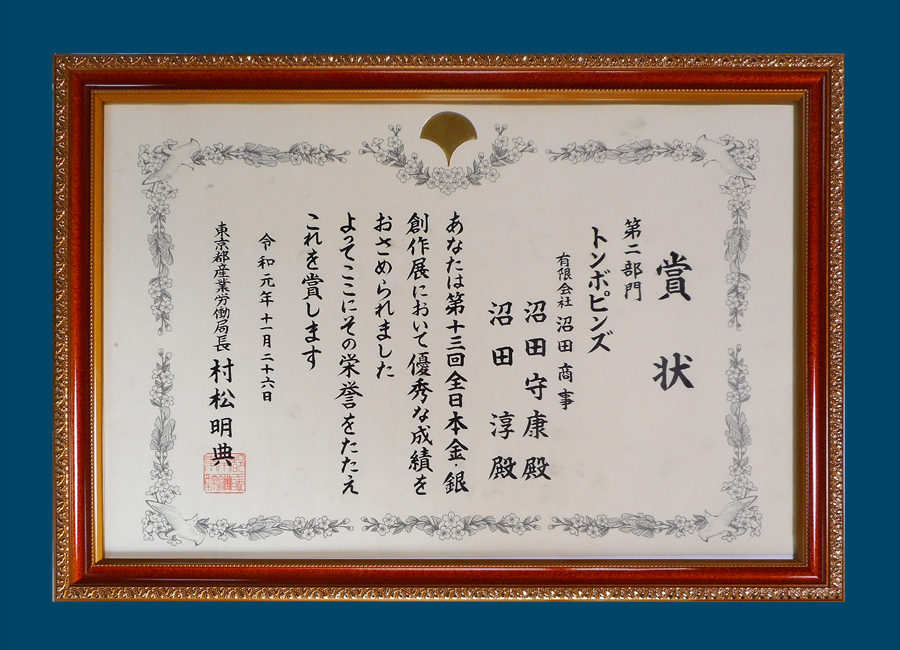 賞状
第二部門
トンボピンズ
有限会社 沼田商事
沼田守康殿
沼田淳殿
あなたは第十三回全日本金・銀
創作展において優秀な成績を
おさめられました
よってここにその栄誉をたたえ
これを賞します
令和元年十一月二十六日
東京都産業労働局長 村松明典